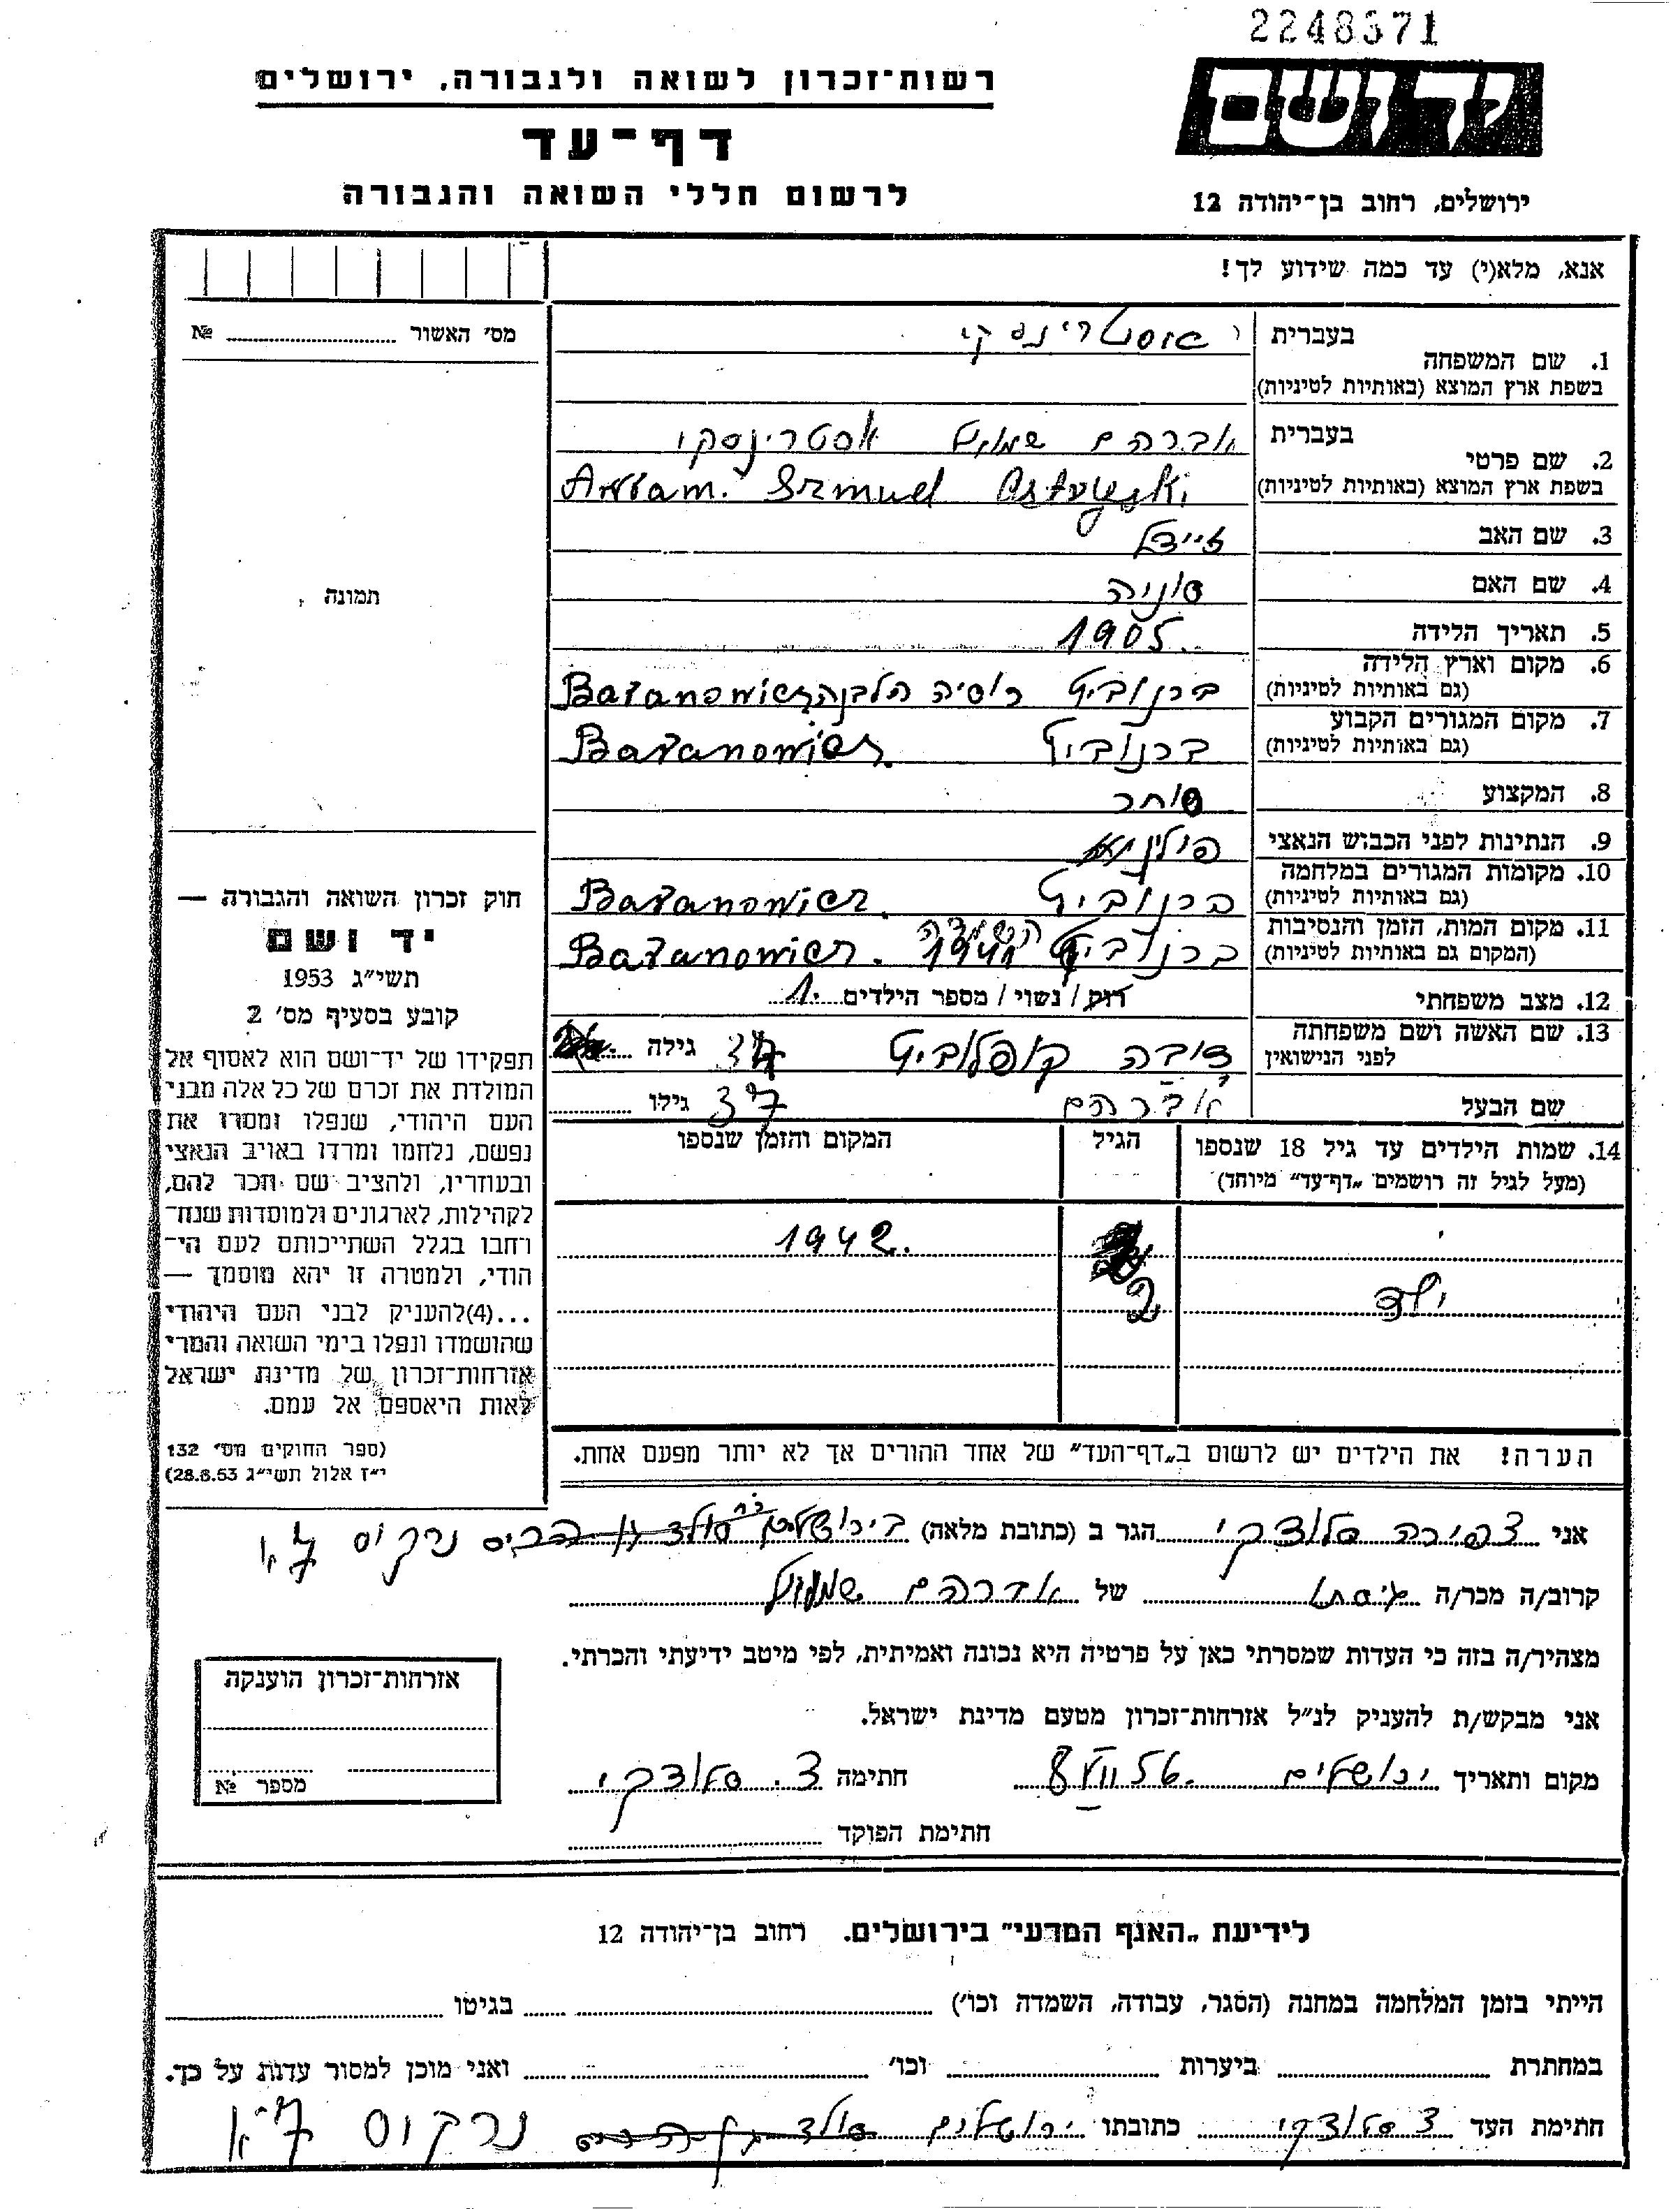 2248371
יד ושם
רשות־זכרון לשואה ולגבורה, ירושלים
דף־עד
לרשום חללי השואה והגבורה
ירושלים, רחוב בן־יהודה 12
אנא, מלא(י) עד כמה שידוע לך!
מס׳ האשור № 
בעברית
1. שם המשפחה
בשפת ארץ המוצא (באותיות לטיניות)
בעברית אברהם שמואל אסטרינסקי
2. שם פרטי
בשפת ארץ המוצא (באותיות לטיניות) Szmuel
3. שם האב זיידל
4. שם האם סוניה
5. תאריך הלידה 1905
6. מקום וארץ הלידה
(גם באותיות לטיניות) ברנוביץ רוסיה הלבנה Baranowicz
7. מקום המגורים הקבוע
(גם באותיות לטיניות) ברנוביץ Baranowicz
8. המקצוע סוחר
9. הנתינות לפני הכבוש הנאצי
10. מקומות המגורים במלחמה
(גם באותיות לטיניות) ברנוביץ Baranowicz
11. מקום המות, הזמן והנסיבות
(המקום גם באותיות לטיניות) ברנוביץ השמדה Baranowicz
12. מצב משפחתי רוק / נשוי / מספר הילדים 1
13. שם האשה ושם משפחתה
לפני הנישואין קופלוביץ גילה
שם הבעל אברהם גילו 37
14. שמות הילדים עד גיל 18 שנספו הגיל המקום והזמן שנספו
(מעל לגיל זה רושמים „דף־עד״ מיוחד)
1942
ילד 2
הערה! את הילדים יש לרשום ב„דף־העד״ של אחד ההורים אך לא יותר מפעם אחת.
תמונה
חוק זכרון השואה והגבורה —
יד ושם
תשי״ג 1953
קובע בסעיף מס׳ 2
תפקידו של יד־ושם הוא לאסוף אל
המולדת את זכרם של כל אלה מבני
העם היהודי, שנפלו ומסרו את
נפשם, נלחמו ומרדו באויב הנאצי
ובעוזריו, ולהציב שם וזכר להם,
לקהילות, לארגונים ולמוסדות שנח־
רבו בגלל השתייכותם לעם הי־
הודי, ולמטרה זו יהא מוסמך —
...(4)להעניק לבני העם היהודי
שהושמדו ונפלו בימי השואה והמרי
אזרחות־זכרון של מדינת ישראל
לאות היאספם אל עמם.
(ספר החוקים מס׳ 132
י״ז אלול תשי״ג 28.8.53)
אני צפורה סלוצקי הגר ב (כתובת מלאה) בירושלים נרקיס
קרוב/ה מכר/ה גיסתו של אברהם שמואל
מצהיר/ה בזה כי העדות שמסרתי כאן על פרטיה היא נכונה ואמיתית, לפי מיטב ידיעתי והכרתי.
אני מבקש/ת להעניק לנ״ל אזרחות־זכרון מטעם מדינת ישראל.
מקום ותאריך ירושלים חתימה צ. סלוצקי
חתימת הפוקד
אזרחות־זכרון הוענקה
מספר №
לידיעת „האגף המדעי״ בירושלים. רחוב בן־יהודה 12
הייתי בזמן המלחמה במחנה (הסגר, עבודה, השמדה וכו׳) בגיטו
במחתרת ביערות וכו׳ ואני מוכן למסור עדות על כך.
חתימת העד צ סלוצקי כתובתו ירושלים נרקיס